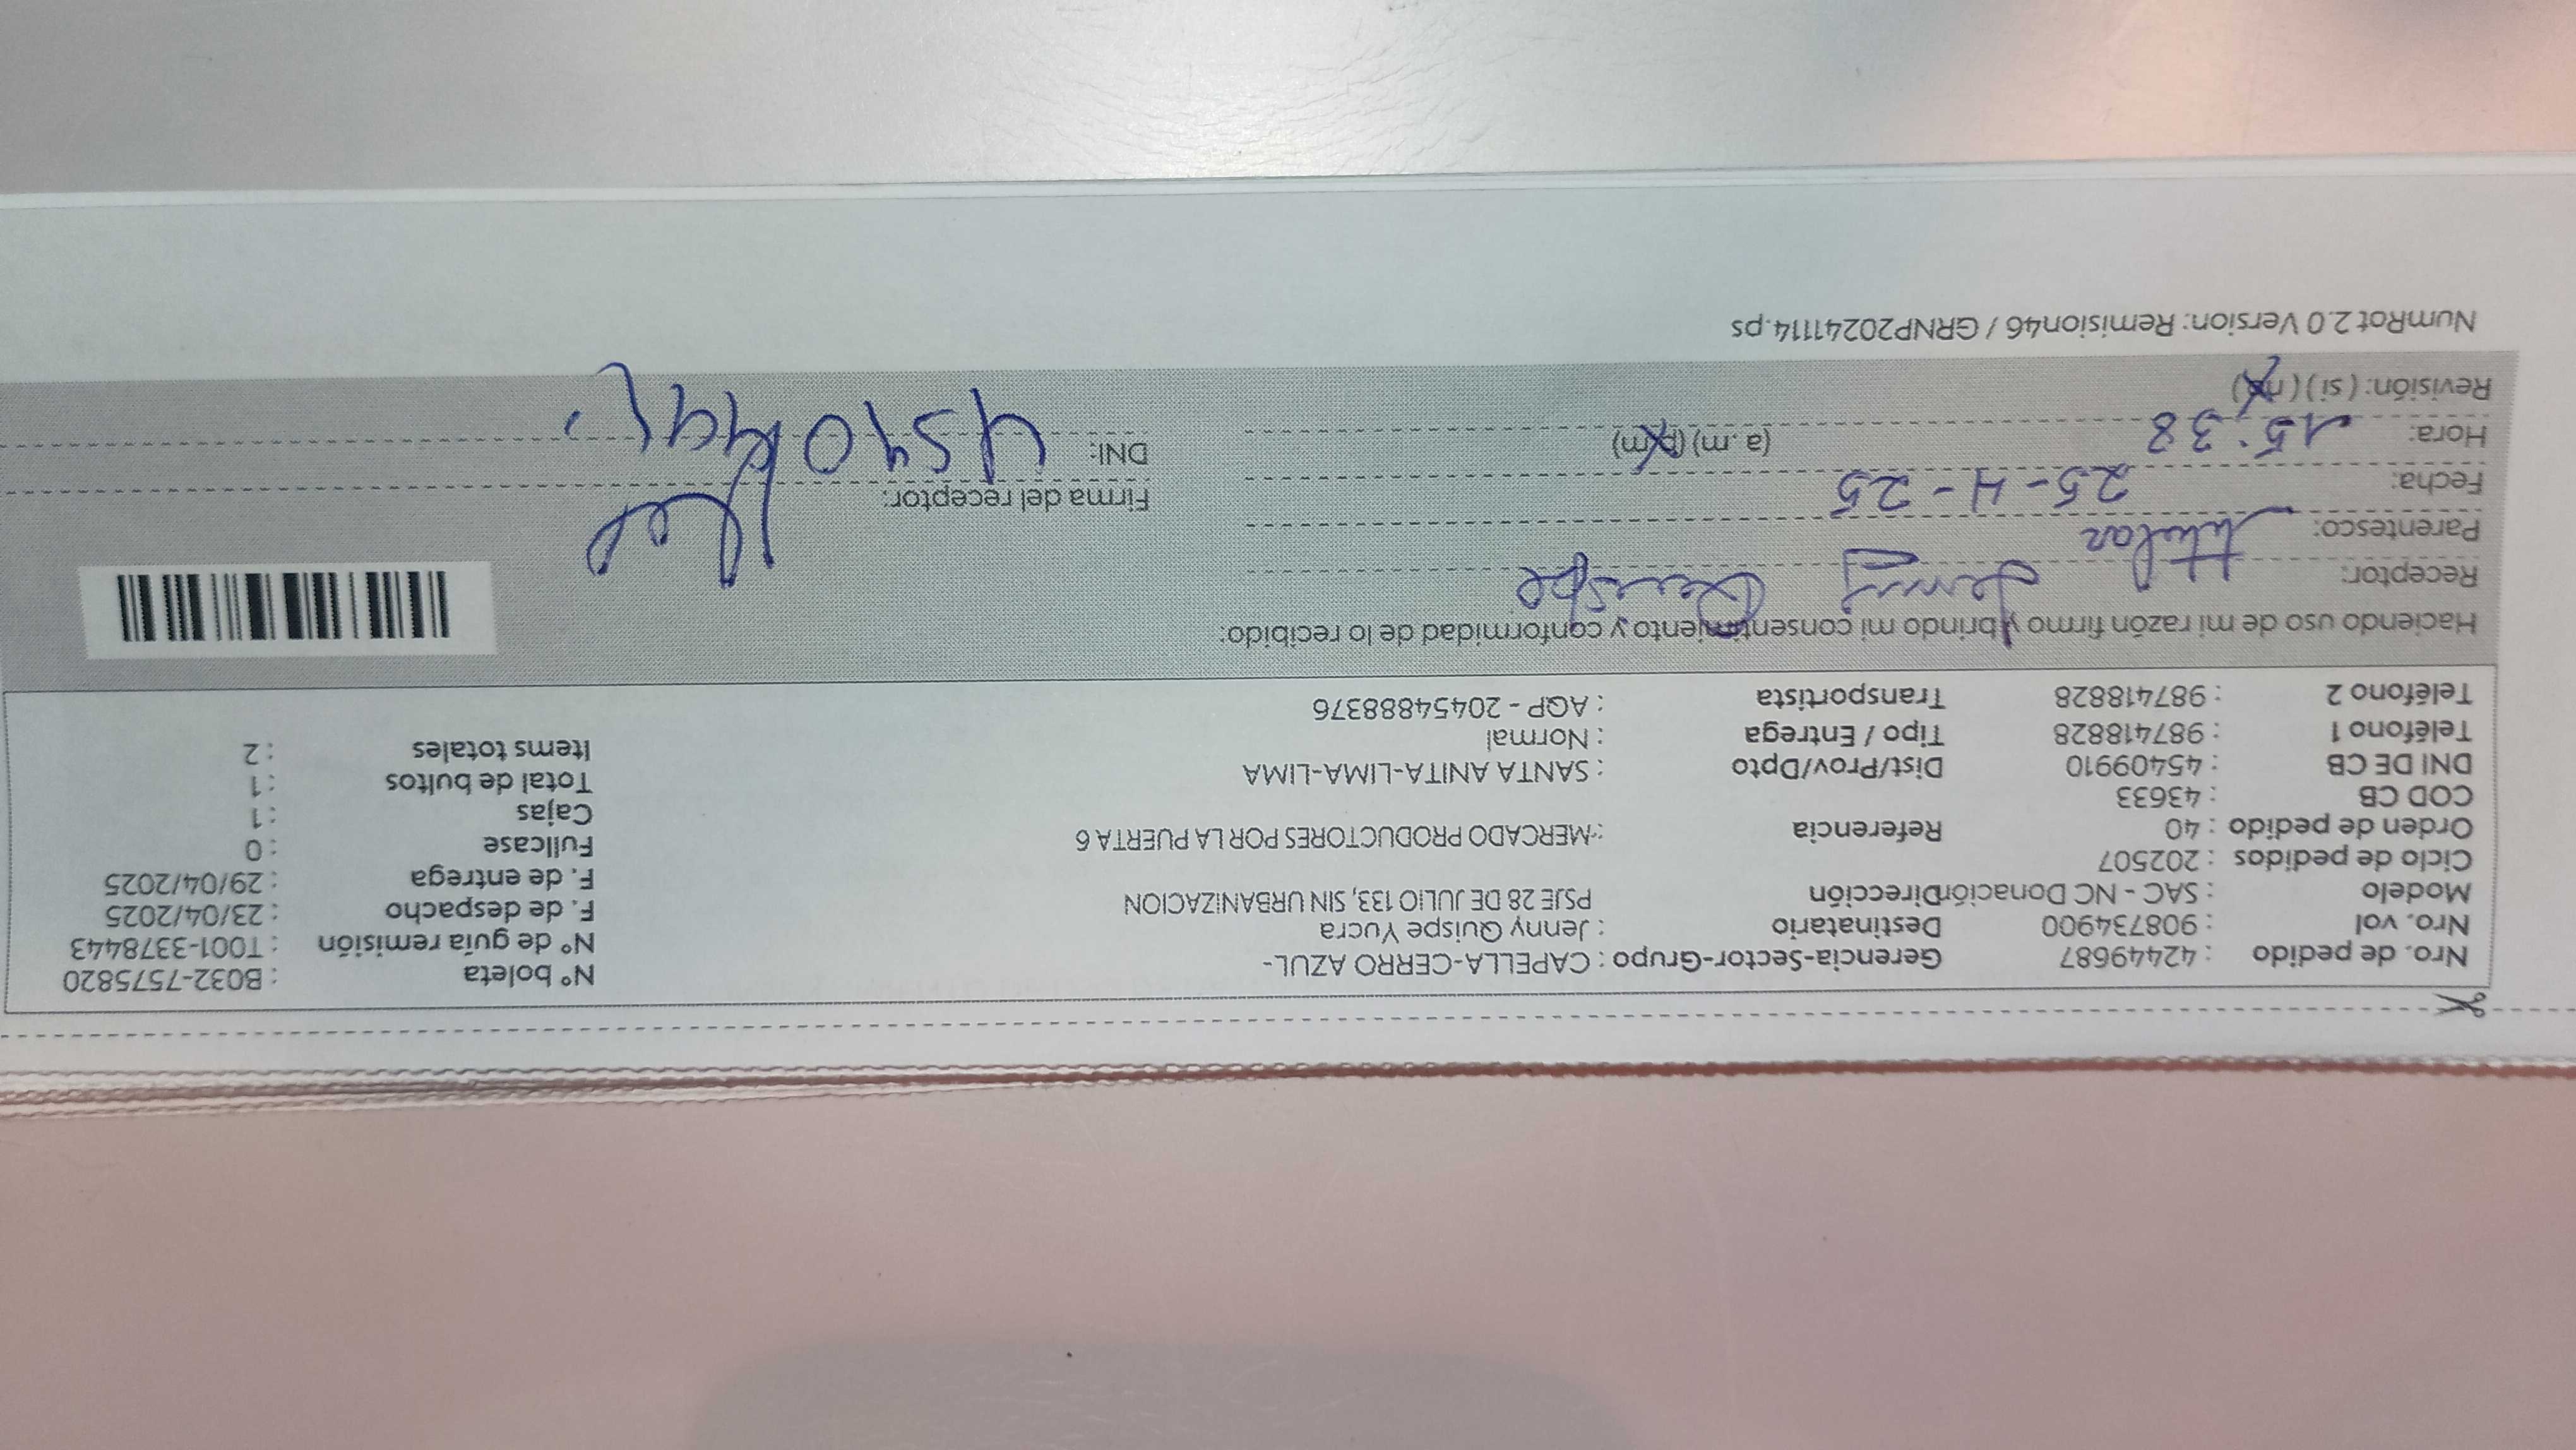 Nro. de pedido : 42449687 Gerencia-Sector-Grupo : CAPELLA-CERRO AZUL- N° boleta : B032-7575820
Nro. vol : 908734900 Destinatario : Jenny Quispe Yucra N° de guía remisión : T001-3378443
Modelo : SAC - NC Donación Dirección PSJE 28 DE JULIO 133, SIN URBANIZACION F. de despacho : 23/04/2025
Ciclo de pedidos : 202507 F. de entrega : 29/04/2025
Orden de pedido : 40 Referencia : MERCADO PRODUCTORES POR LA PUERTA 6 Fullcase : 0
COD CB : 43633 Cajas : 1
DNI DE CB : 45409910 Dist/Prov/Dpto : SANTA ANITA-LIMA-LIMA Total de bultos : 1
Teléfono 1 : 987418828 Tipo / Entrega : Normal Items totales : 2
Teléfono 2 : 987418828 Transportista : AQP - 20454888376
Haciendo uso de mi razón firmo y brindo mi consentimiento y conformidad de lo recibido:
Receptor: Jenny Quispe
Parentesco: titular
Fecha: 25-4-25 Firma del receptor:
Hora: 15:38 (a.m) (p.m) DNI:
Revisión: (si) (no)
NumRot 2.0 Version: Remision46 / GRNP20241114.ps